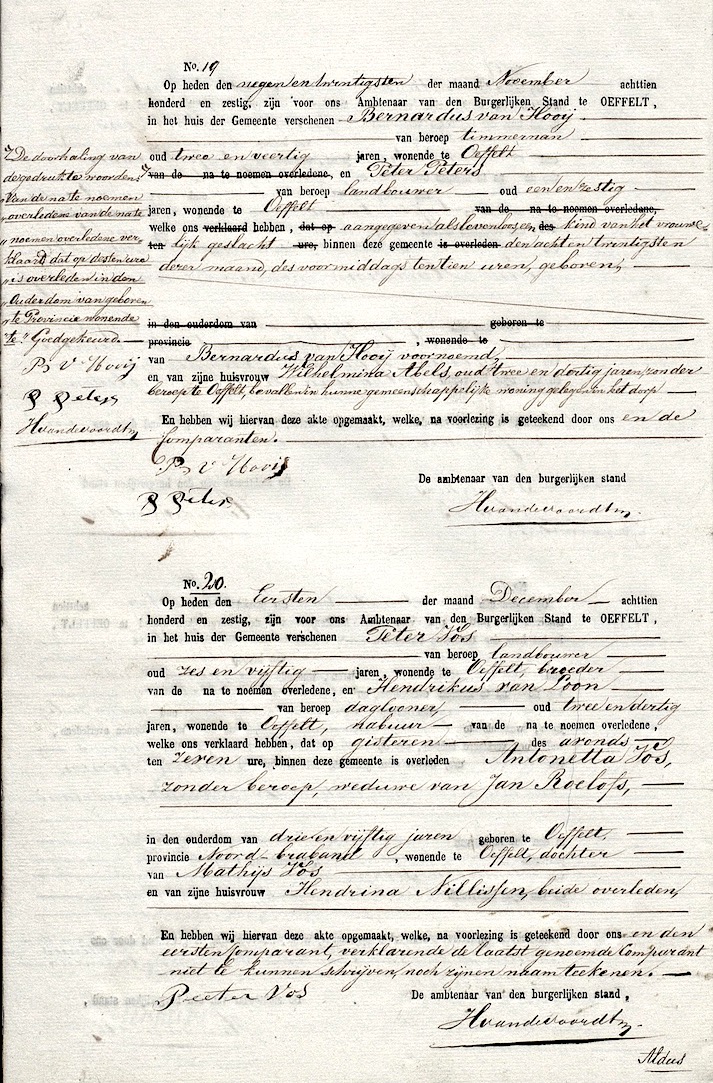 No. 19
Op heden den negen en twintigsten der maand November achttien
honderd en zestig, zijn voor ons Ambtenaar van den Burgerlijken Stand te OEFFELT,
in het huis der Gemeente verschenen Bernardus van Hooy
van beroep timmerman
oud twee en veertig jaren, wonende te Oeffelt
van de na te noemen overledene, en Peter Peters
van beroep landbouwer oud een en zestig
jaren, wonende te Oeffelt van de na te noemen overledene,
welke ons verklaard hebben, dat op aangegeven als levenloos een des kind van het vrouwe-
ten lijk geslacht ure, binnen deze gemeente is overleden den achten twintigsten
dezer maand, des voormiddags ten tien uren, geboren,
in den ouderdom van geboren te
provincie , wonende te
van Bernardus van Hooy voornoemd,
en van zijne huisvrouw Wilhelmina Abels, oud twee en dertig jaren, zonder
beroep te Oeffelt, bevallen in hunne gemeenschappelijke woning gelegen in het dorp
En hebben wij hiervan deze akte opgemaakt, welke, na voorlezing is geteekend door ons en de
Comparanten.
B v Hooij
P Peters
De ambtenaar van den burgerlijken stand
HvandeVoordt
De doorhaling van
de gedrukte woorden
"Van de na te noemen
"overledene van de na te
"noemen overledene ver
klaard dat op des ten ure
"is overleden in den
"Ouderdom van geboren
"te Provincie wonende
te" Goedgekeurd.
B v Hooij
P Peters
HvandeVoordt
No. 20.
Op heden den Eersten der maand December achttien
honderd en zestig, zijn voor ons Ambtenaar van den Burgerlijken Stand te OEFFELT,
in het huis der Gemeente verschenen Peter Vos
van beroep landbouwer
oud zes en vijftig jaren, wonende te Oeffelt, broeder
van de na te noemen overledene, en Hendrikus van Loon
van beroep daglooner, oud twee en dertig
jaren, wonende te Oeffelt, nabuur van de na te noemen overledene,
welke ons verklaard hebben, dat op gisteren des avonds
ten zeven ure, binnen deze gemeente is overleden Antonetta Vos,
zonder beroep, weduwe van Jan Roelofs,
in den ouderdom van drie en vijftig jaren geboren te Oeffelt,
provincie Noord-braband, wonende te Oeffelt, dochter
van Mathijs Vos
en van zijne huisvrouw Hendrina Nillissen, beide overleden,
En hebben wij hiervan deze akte opgemaakt, welke, na voorlezing is geteekend door ons en den
eersten Comparant, verklarende de laatst genoemde Comparant
niet te kunnen schrijven, noch zijnen naam teekenen.
Peeter Vos
De ambtenaar van den burgerlijken stand,
HvandeVoordt
Aldus